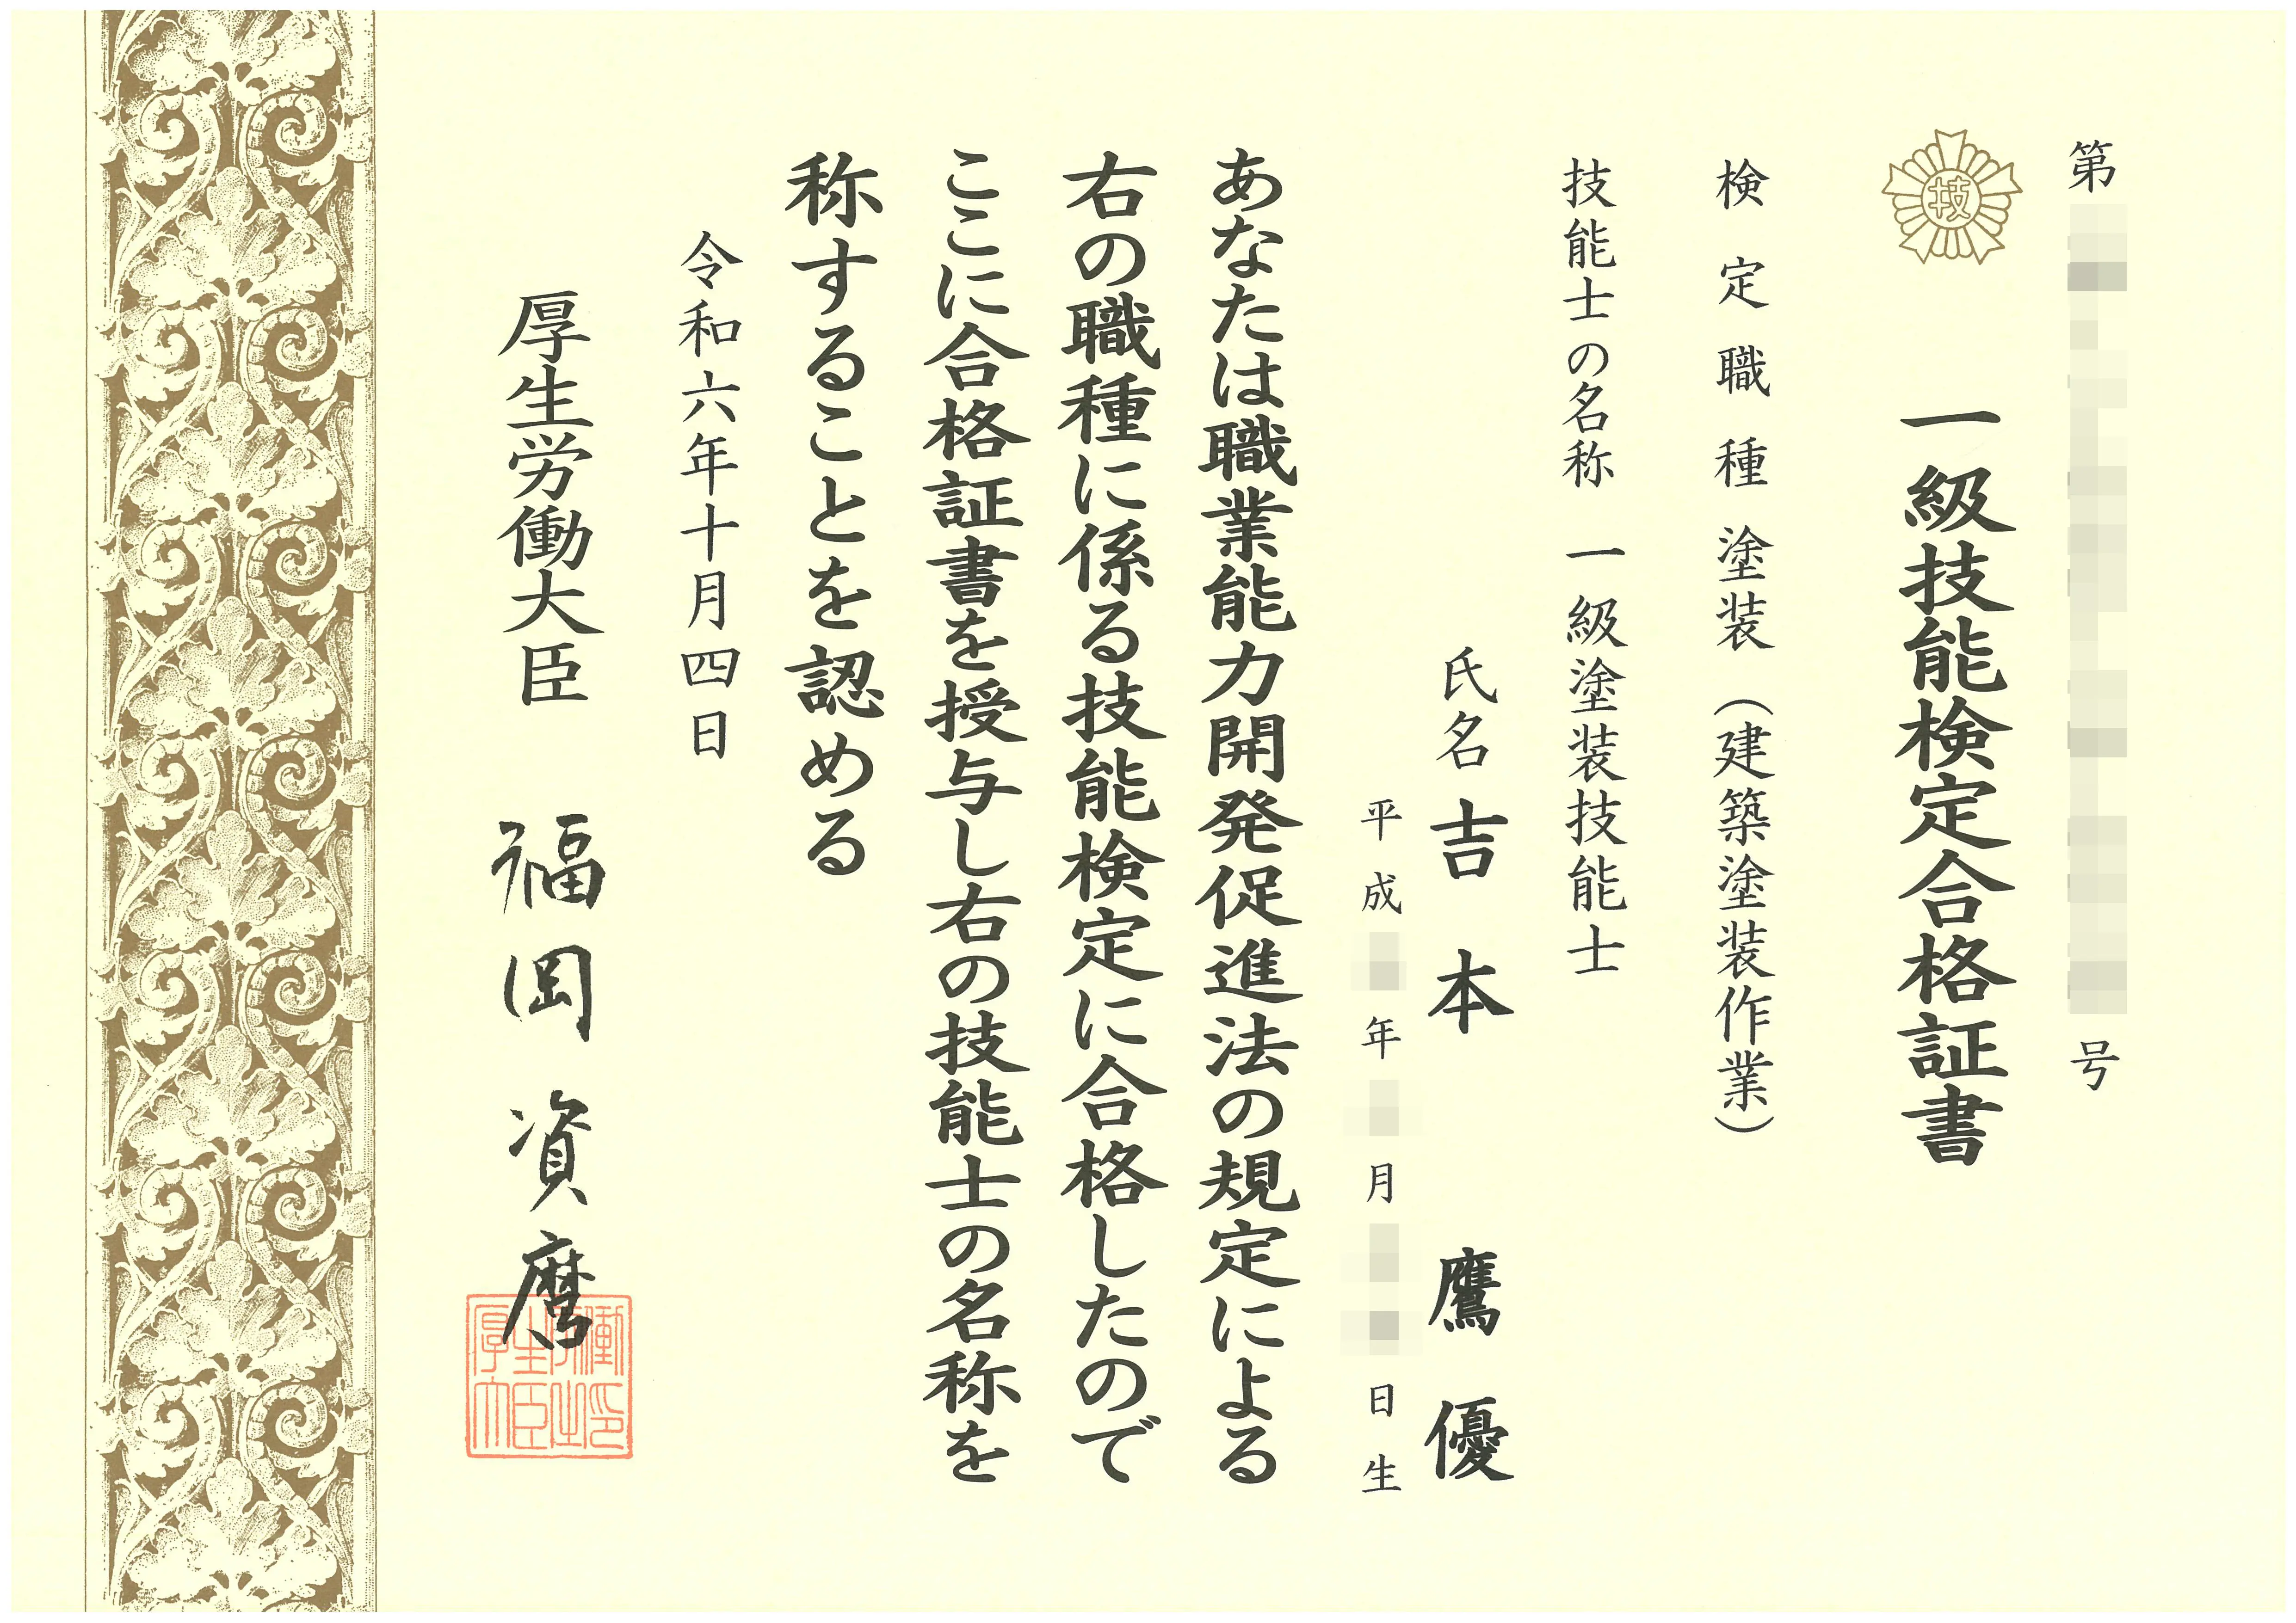 第 号
技
一級技能検定合格証書
検定職種 塗装(建築塗装作業)
技能士の名称 一級塗装技能士
氏名 吉本 鷹優
平成 年 月 日生
あなたは職業能力開発促進法の規定による
右の職種に係る技能検定に合格したので
ここに合格証書を授与し右の技能士の名称を
称することを認める
令和六年十月四日
厚生労働大臣 福岡資麿
厚生労働大臣之印